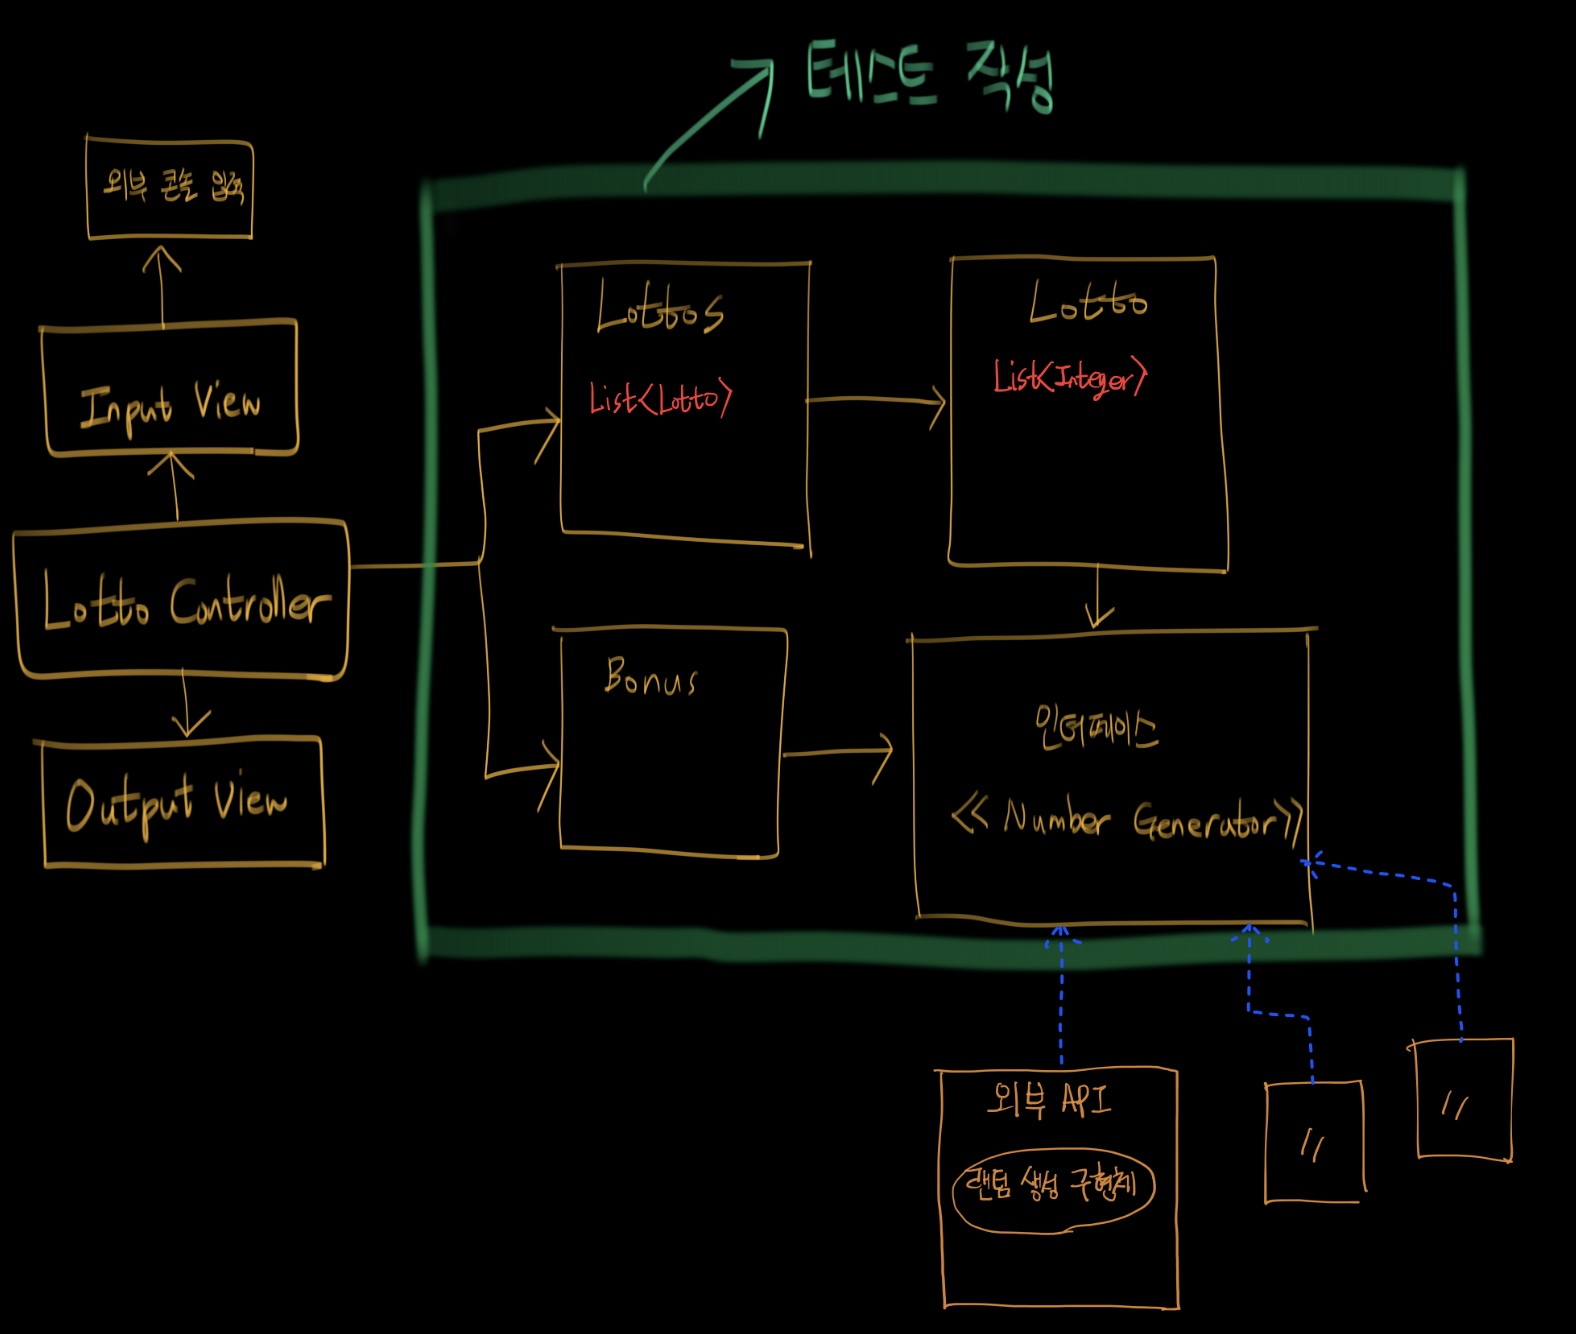 테스트 작성
외부 콘솔 입력
Input View
Lotto Controller
Output View
Lottos
List<Lotto>
Lotto
List<Integer>
Bonus
인터페이스
<< Number Generator>>
외부 API
랜덤 생성 구현체
〃
〃